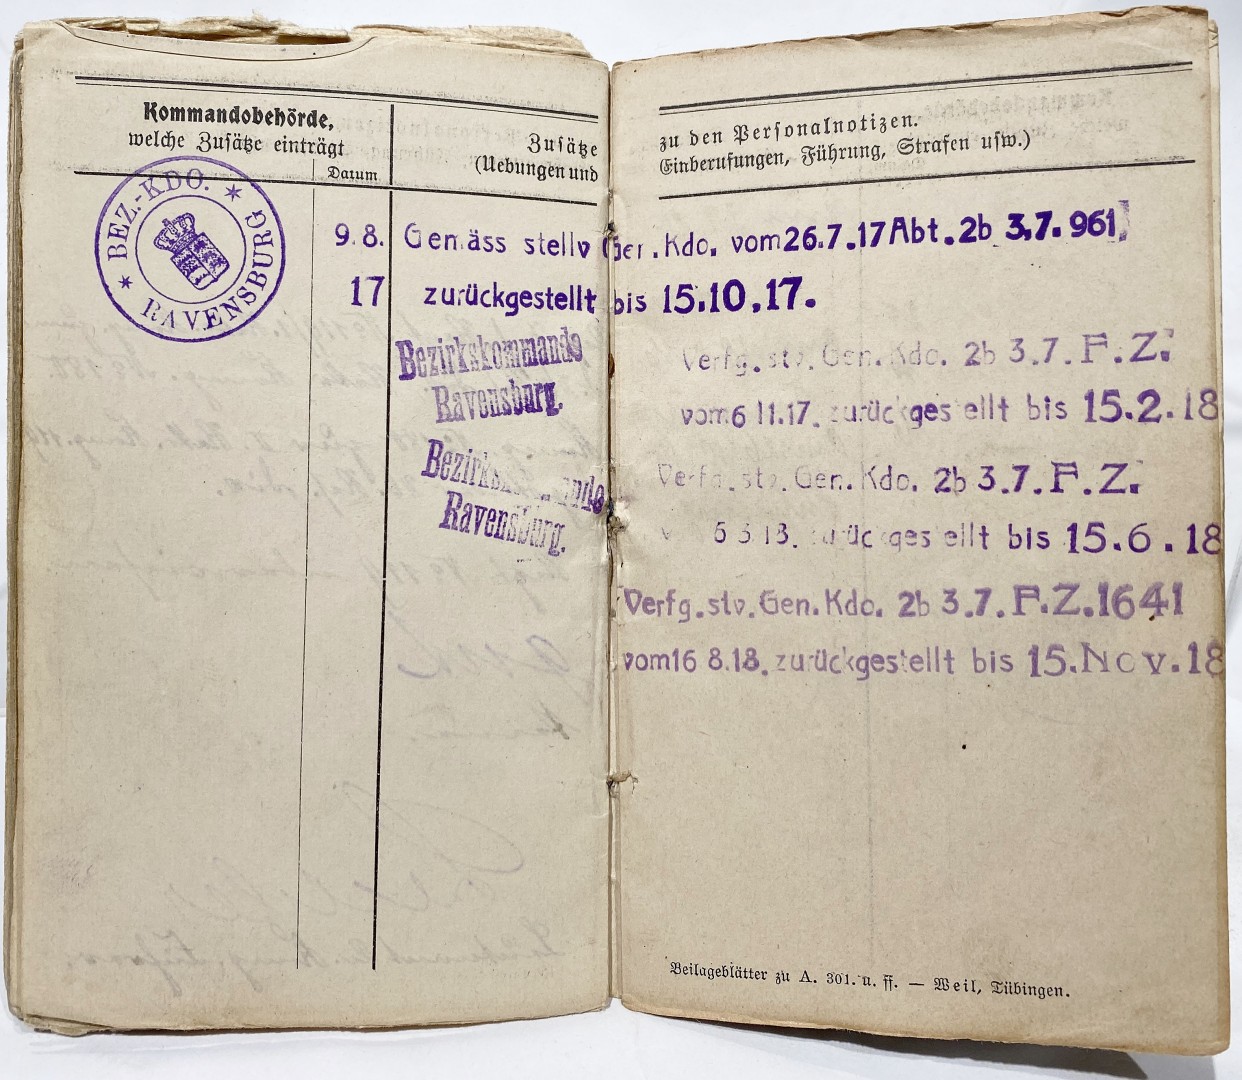 Kommandobehörde,
welche Zusätze einträgt
Datum
Zusätze
(Uebungen und
zu den Personalnotizen.
Einberufungen, Führung, Strafen usw.)
* BEZ.-KDO. * RAVENSBURG
9.8. Gemäss stellv Gen. Kdo. vom 26.7.17 Abt. 2b 3.7. 961
17 zurückgestellt bis 15.10.17.
Bezirkskommando
Ravensburg.
Verfg. stv. Gen. Kdo. 2b 3.7. F. Z.
vom 6 11.17. zurückgestellt bis 15.2.18
Bezirkskommando
Ravensburg.
Verfg. stv. Gen. Kdo. 2b 3.7. F. Z.
6 3 18. zurückgestellt bis 15.6.18
Verfg. stv. Gen. Kdo. 2b 3.7. F.Z. 1641
vom 16 8.18. zurückgestellt bis 15. Nov. 18
Beilageblätter zu A. 301. u. ff. — Weil, Tübingen.